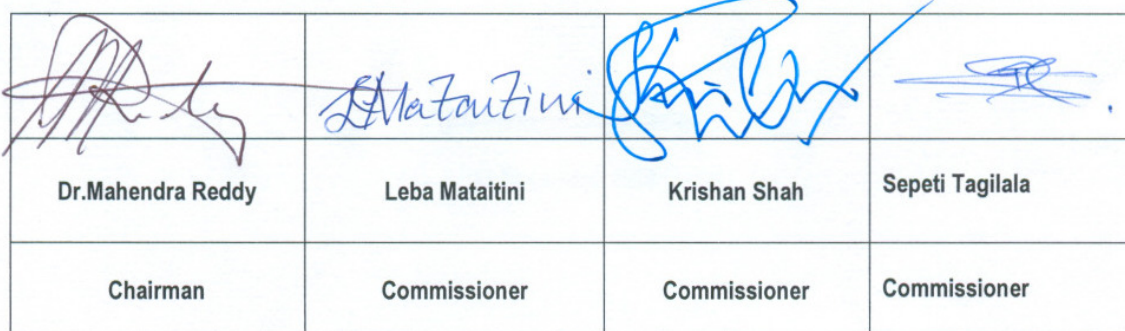 Dr.Mahendra Reddy Leba Mataitini Krishan Shah Sepeti Tagilala
Chairman Commissioner Commissioner Commissioner